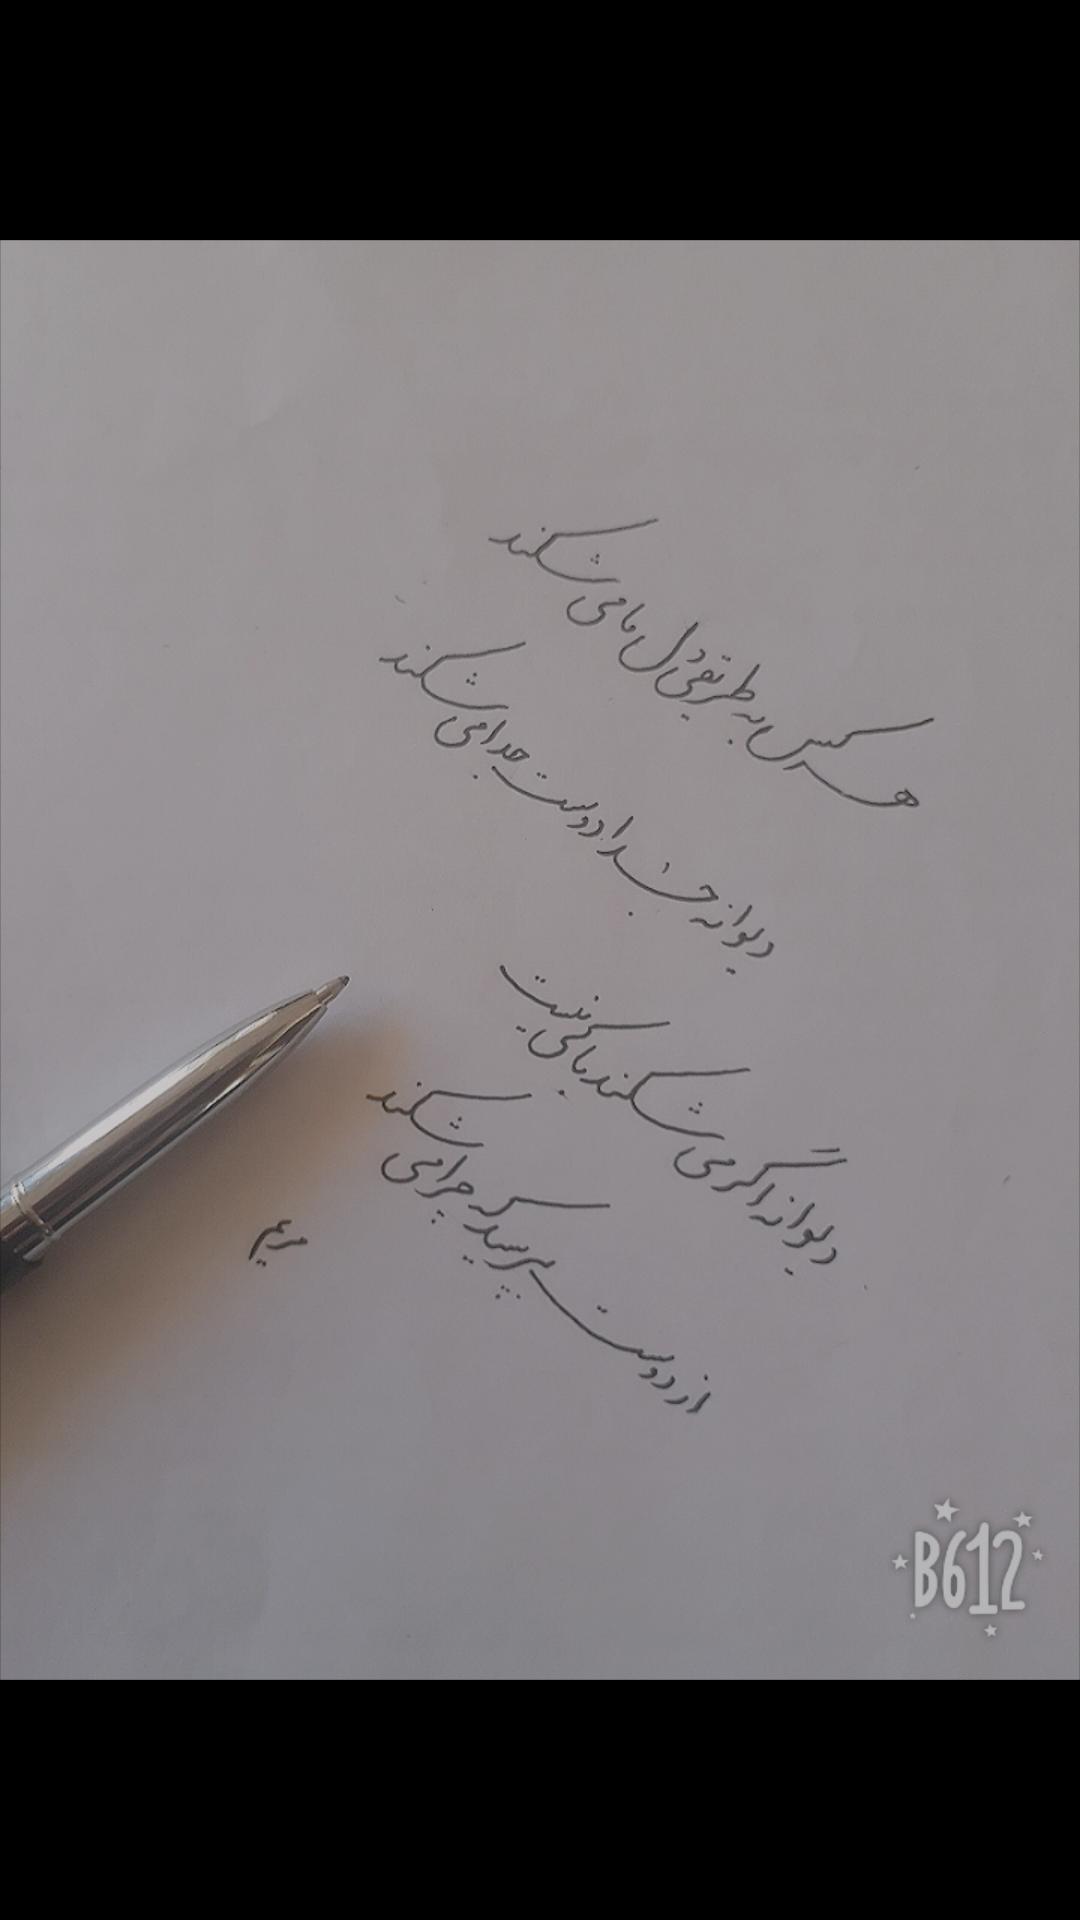 هر کس به طریقی دل ما می شکند
دیوانه جدا دوست جدا می شکند
دیوانه اگر می شکند باکی نیست
از دوست بپرسید که چرا می شکند
مریم
B612